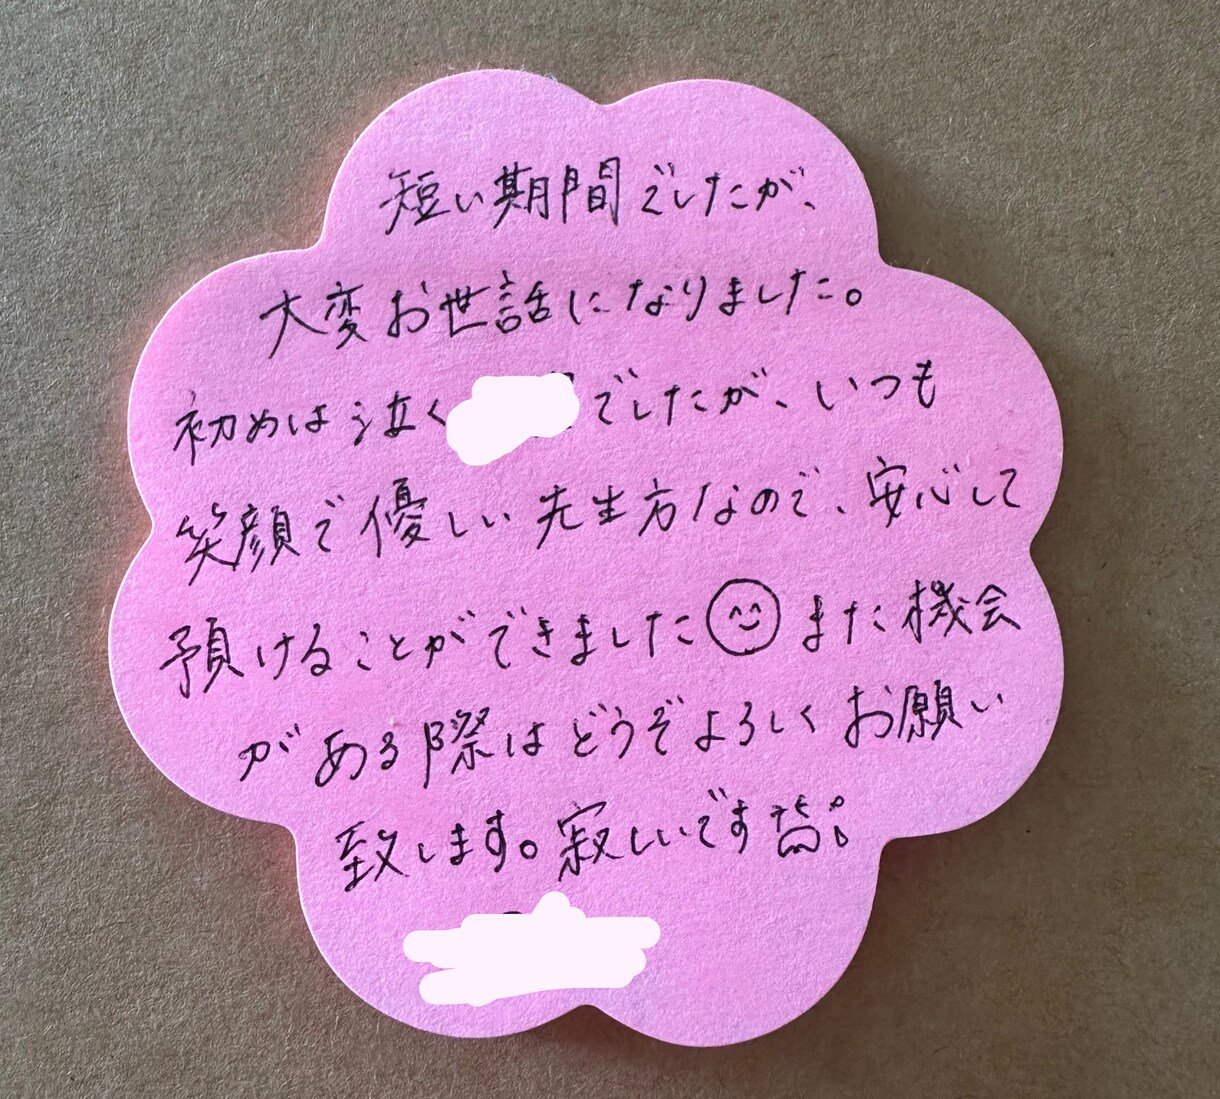 短い期間でしたが、
大変お世話になりました。
初めは泣く でしたが、いつも
笑顔で優しい先生方なので、安心して
預けることができました また機会
がある際はどうぞよろしくお願い
致します。寂しいです